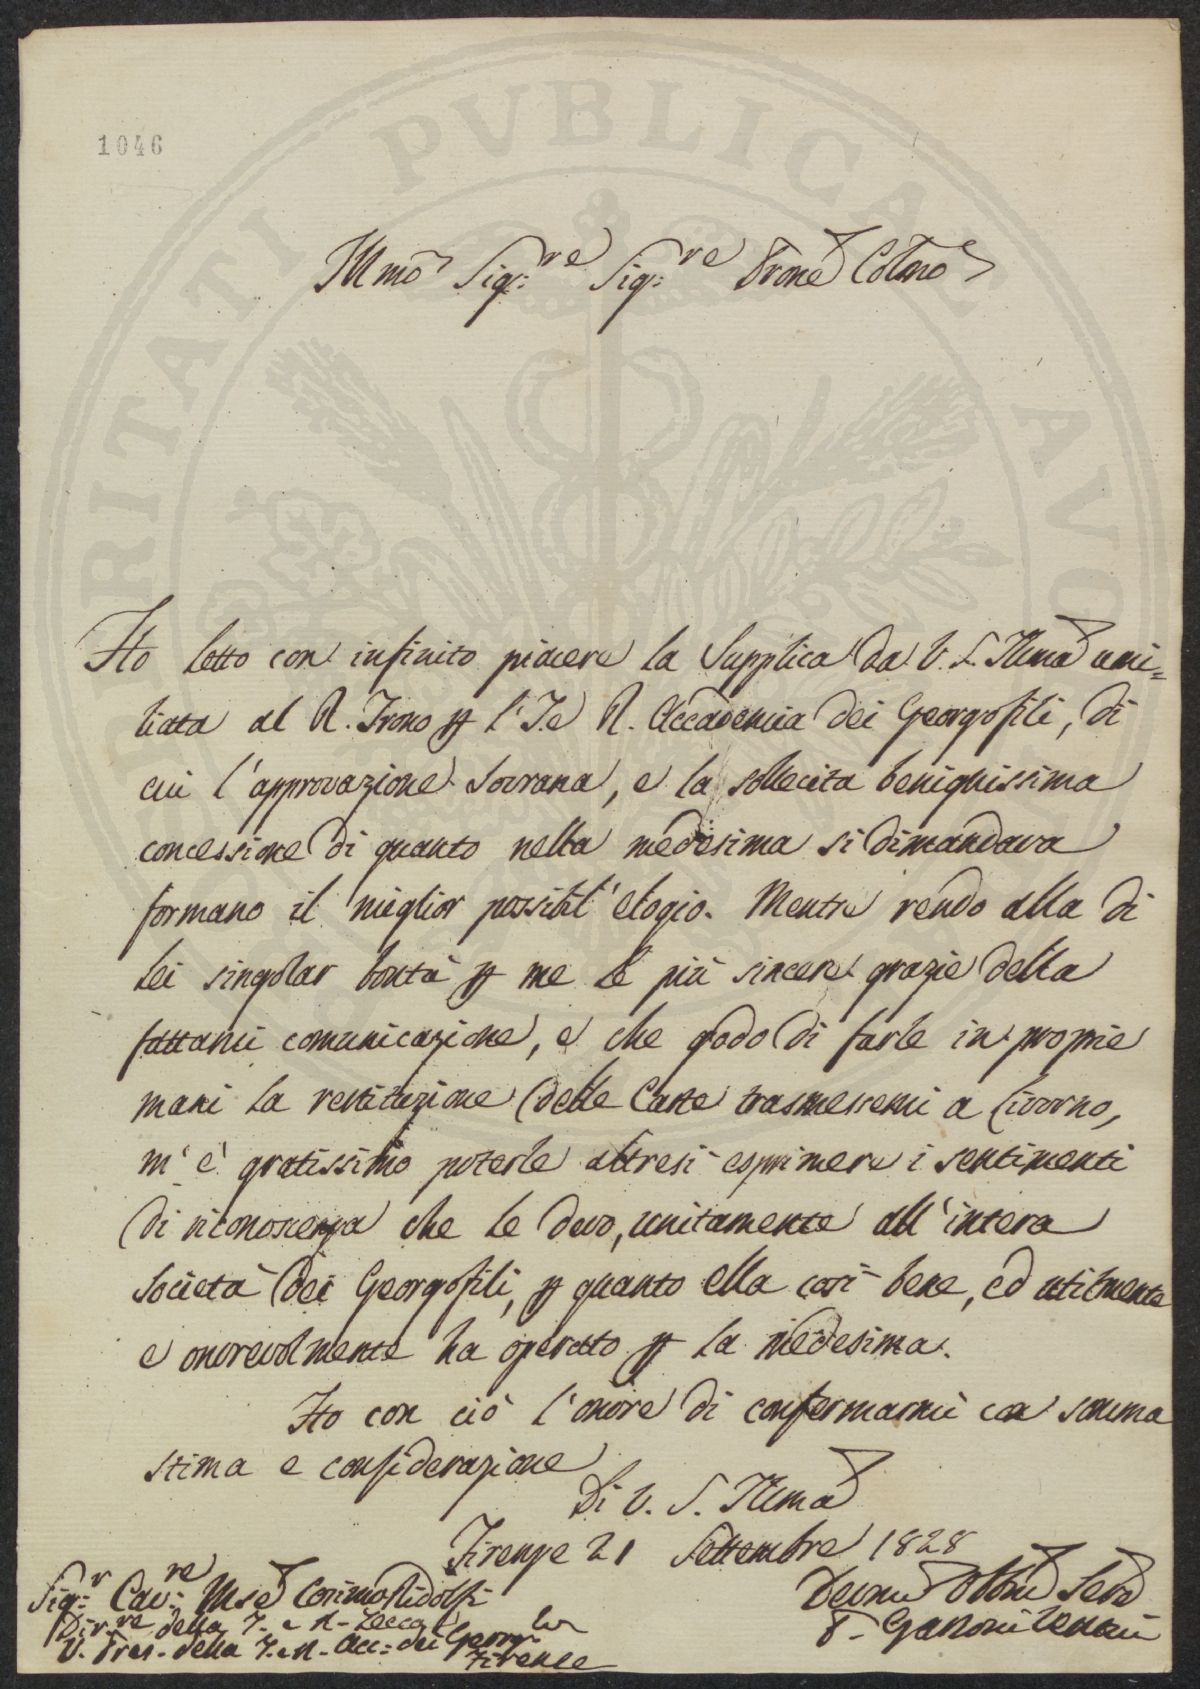 1046
Illmo Sig:re Sig:re Prone Colmo
Ho letto con infinito piacere la Supplica da V. S. Illma umi=
liata al R. Trono p l'I. e R. Accademia dei Georgofili, di
cui l'approvazione Sovrana, e la sollecita benignissima
concessione di quanto nella medesima si dimandava
formano il miglior possibil' elogio. Mentre rendo alla di
Lei singolar bontà p me le più sincere grazie della
fattami comunicazione, e che godo di farle in proprie
mani la restituzione delle Carte trasmessemi a Livorno,
m'è gratissimo poterle altresì esprimere i sentimenti
di riconoscenza che le devo, unitamente all'intera
Società dei Georgofili, p quanto ella così bene, ed utilmente
e onorevolmente ha operato p la medesima.
Ho con ciò l'onore di confermarmi con somma
stima e considerazione
Di V. S. Illma
Firenze 21 Settembre 1828
Sig:r Cav:re Mse Cosimo Ridolfi
Dirre della I. e R. Zecca
V. Pres. della I. e R. Acc: dei Georg:li
Firenze
Devmo Obbmo Serv